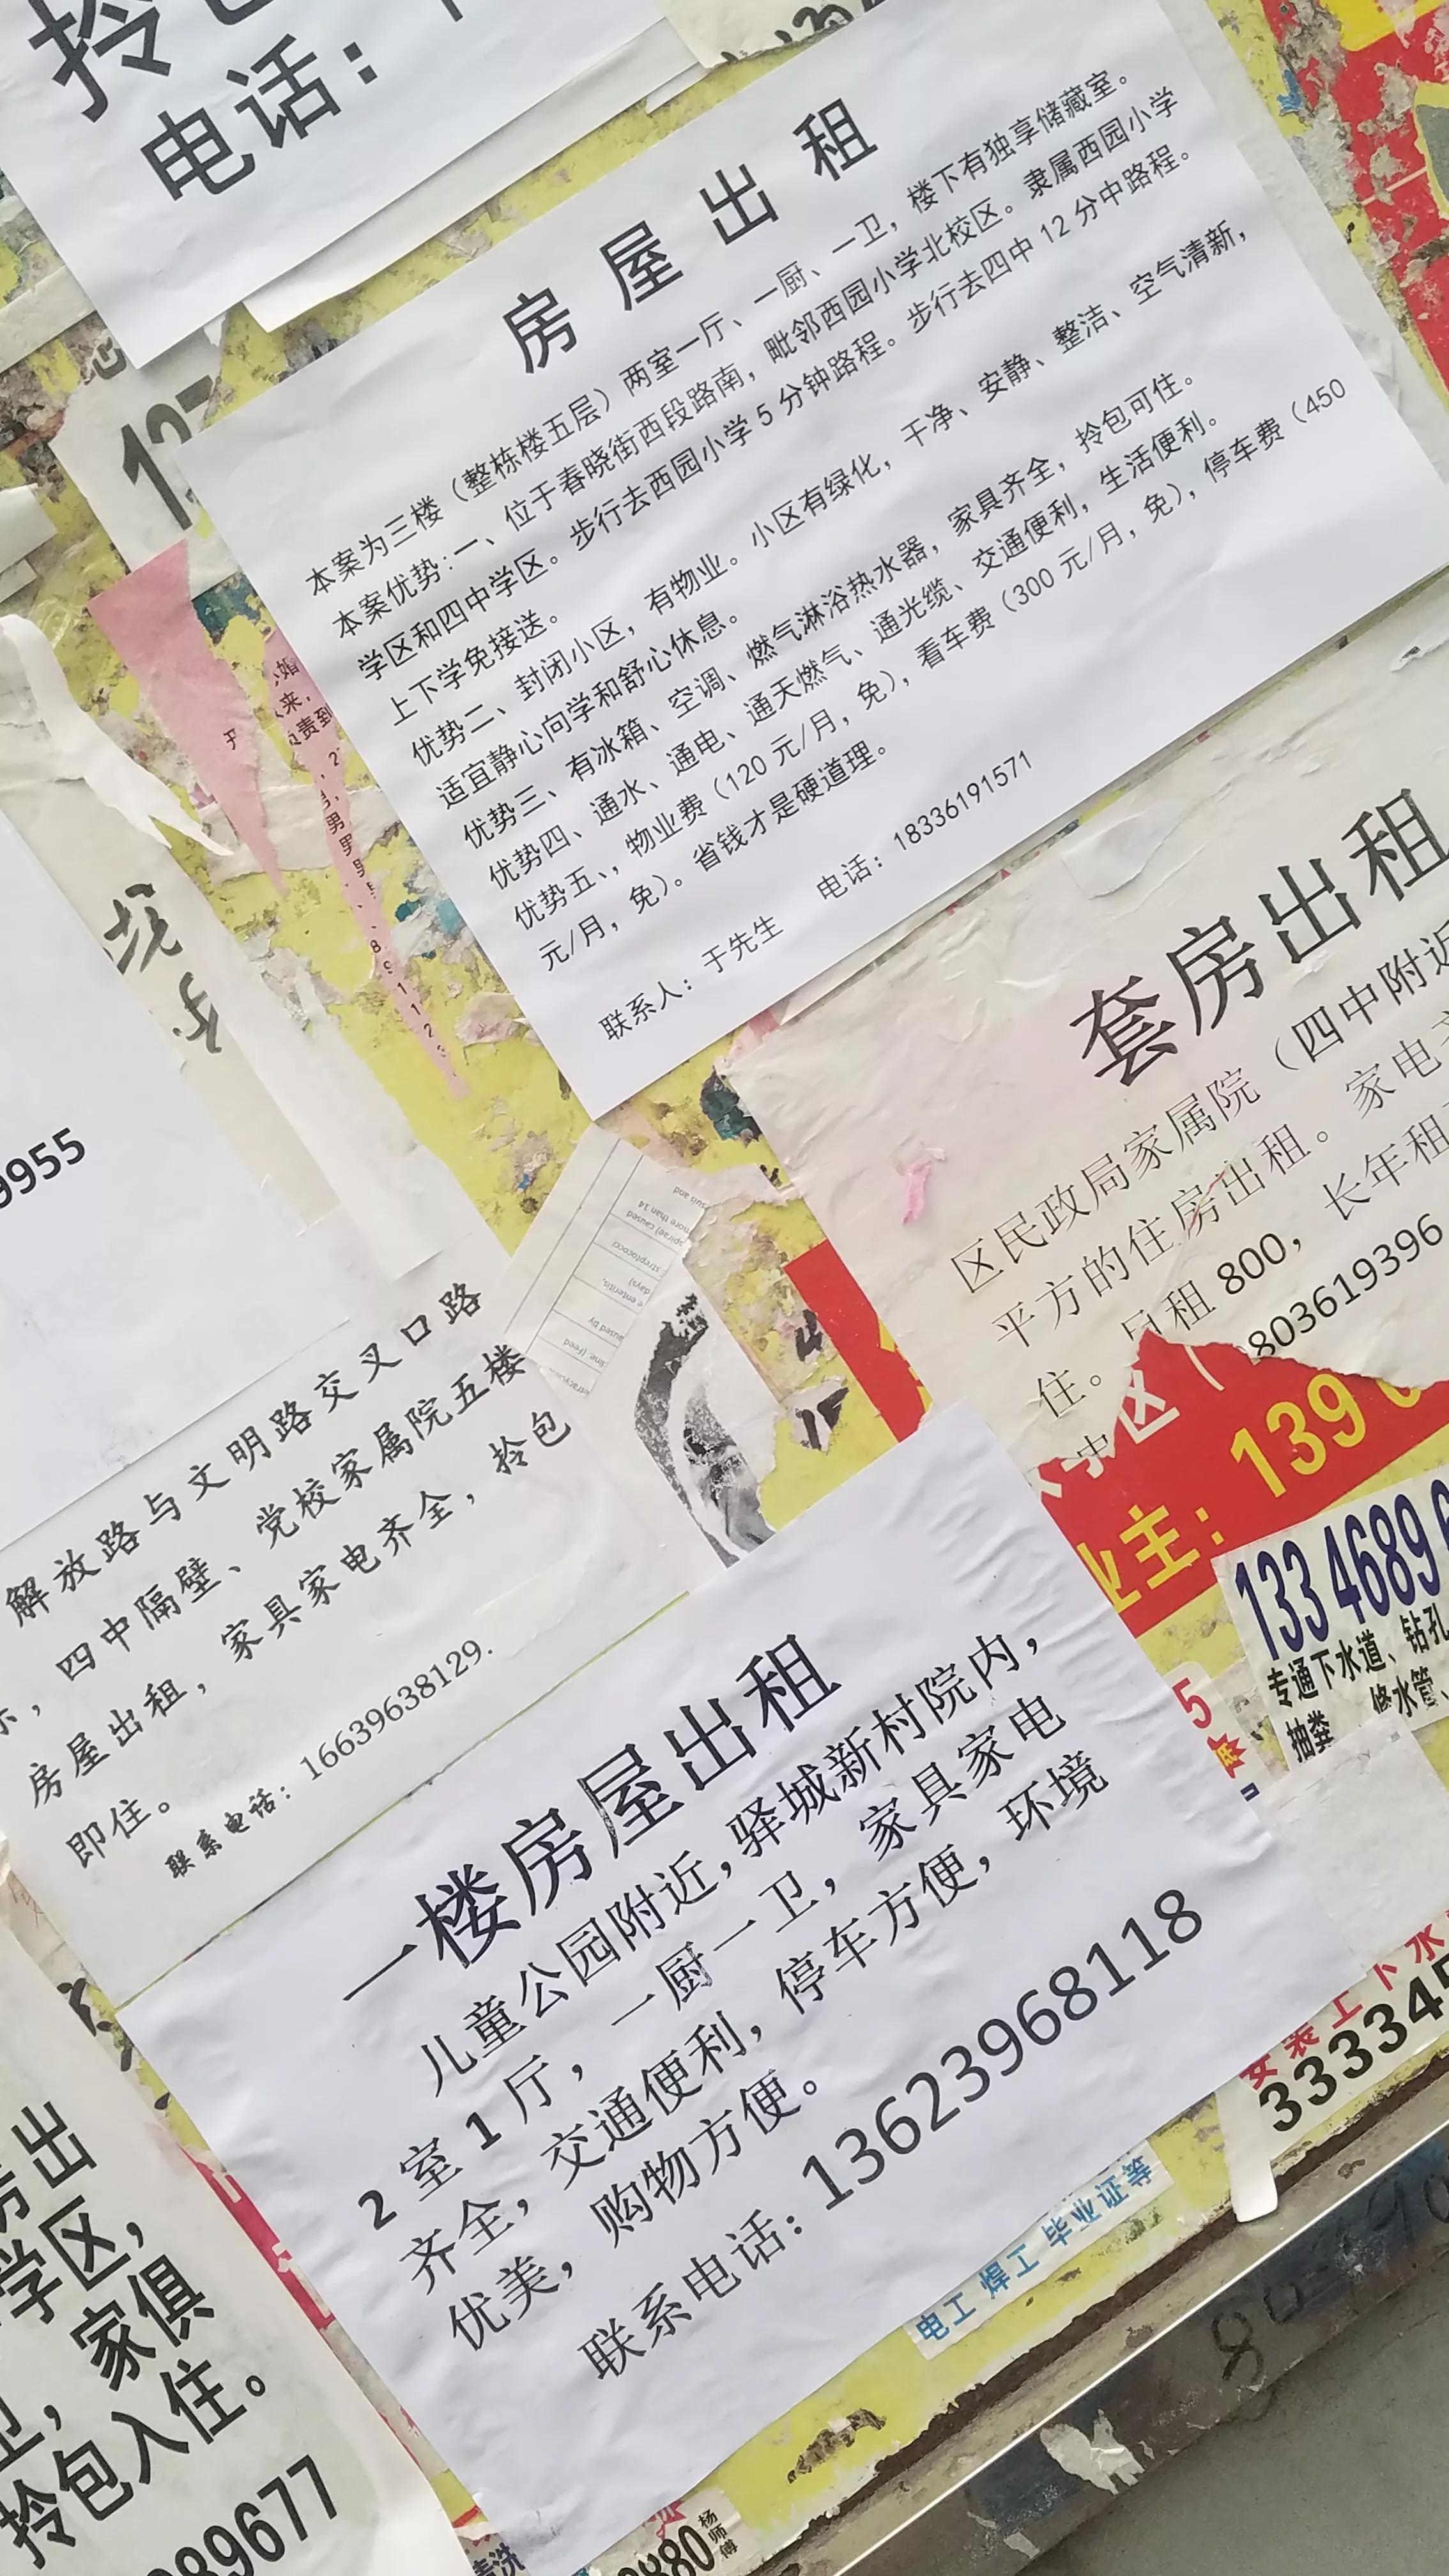 拎
电话：
房屋出租
本案为三楼（整栋楼五层）两室一厅、一厨、一卫，楼下有独享储藏室。
本案优势:一、位于春晓街西段路南，毗邻西园小学北校区。隶属西园小学
学区和四中学区。步行去西园小学5分钟路程。步行去四中12分中路程。
上下学免接送。
优势二、封闭小区，有物业。小区有绿化，干净、安静、整洁、空气清新，
适宜静心向学和舒心休息。
优势三、有冰箱、空调、燃气淋浴热水器，家具齐全，拎包可住。
优势四、通水、通电、通天燃气、通光缆、交通便利，生活便利。
优势五、，物业费（120元/月，免），看车费（300元/月，免），停车费（450
元/月，免）。省钱才是硬道理。
联系人：于先生 电话：18336191571
套房出租
区民政局家属院（四中附近
平方的住房出租。家电
住。 租800，长年租
8036193 96
9955
解放路与文明路交叉口路
，四中隔壁、党校家属院五楼
房屋出租，家具家电齐全，拎包
即住。
联系电话：16639638129.
业主：139
133 4689
专通下水道、钻孔
抽粪 修水管、
一楼房屋出租
儿童公园附近，驿城新村院内，
2室1厅，一厨一卫，家具家电
齐全，交通便利，停车方便，环境
优美，购物方便。
联系电话：13623968118
33334
电工 焊工 毕业证等
出
学区，
卫，家俱
拎包入住。
89677
880
杨师傅
清洗